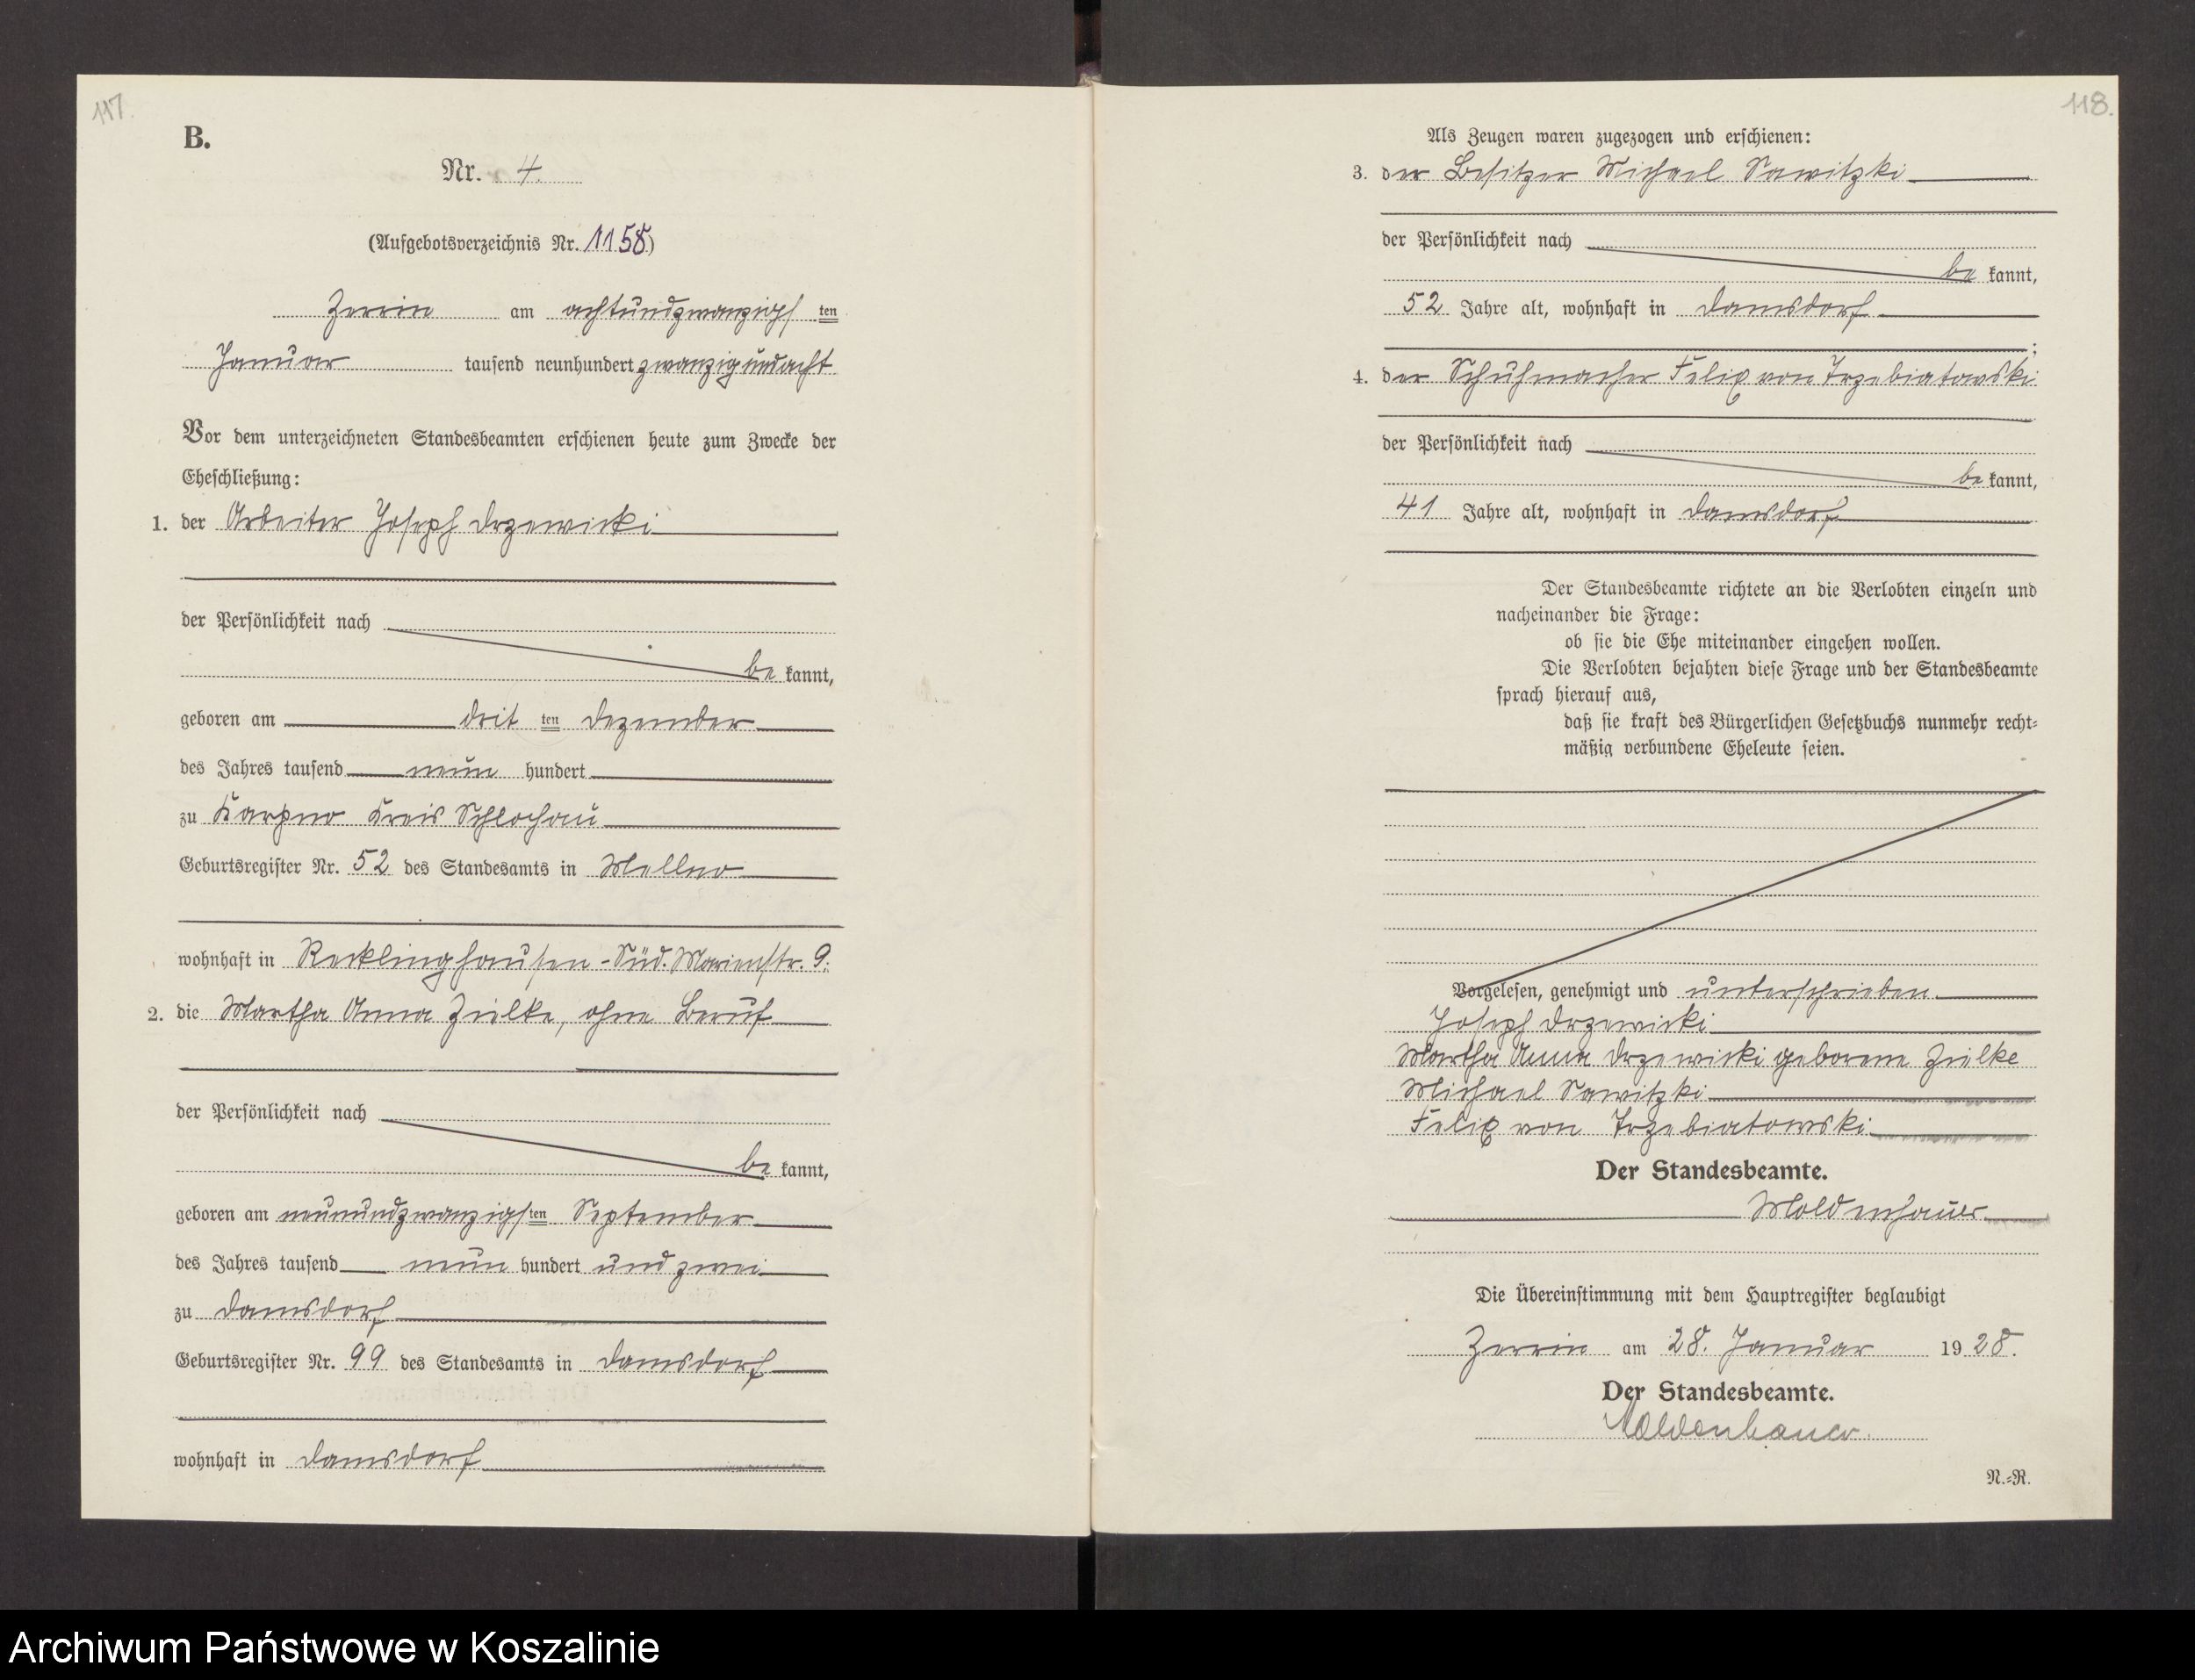 117.
B.
Nr. 4.
(Aufgebotsverzeichnis Nr. 1158)
Zerrin am achtundzwanzigsten
Januar tausend neunhundert zwanzigundacht
Vor dem unterzeichneten Standesbeamten erschienen heute zum Zwecke der
Eheschließung:
1. der Arbeiter Joseph Drzewicki
der Persönlichkeit nach
bekannt,
geboren am dritten Dezember
des Jahres tausend neun hundert
zu Karpno Kreis Schlochau
Geburtsregister Nr. 52 des Standesamts in Mellno
wohnhaft in Recklinghausen-Süd. Marienstr. 9;
2. die Martha Anna Zielke, ohne Beruf
der Persönlichkeit nach
bekannt,
geboren am neunundzwanzigsten September
des Jahres tausend neun hundert und zwei
zu Damsdorf
Geburtsregister Nr. 99 des Standesamts in Damsdorf
wohnhaft in Damsdorf
118.
Als Zeugen waren zugezogen und erschienen:
3. der Besitzer Michael Sawitzki
der Persönlichkeit nach
bekannt,
52 Jahre alt, wohnhaft in Damsdorf
;
4. der Schuhmacher Felix von Trzebiatowski
der Persönlichkeit nach
bekannt,
41 Jahre alt, wohnhaft in Damsdorf
Der Standesbeamte richtete an die Verlobten einzeln und
nacheinander die Frage:
ob sie die Ehe miteinander eingehen wollen.
Die Verlobten bejahten diese Frage und der Standesbeamte
sprach hierauf aus,
daß sie kraft des Bürgerlichen Gesetzbuchs nunmehr recht-
mäßig verbundene Eheleute seien.
Vorgelesen, genehmigt und unterschrieben
Joseph Drzewicki
Martha Anna Drzewicki geborene Zielke
Michael Sawitzki
Felix von Trzebiatowski
Der Standesbeamte.
Moldenhauer
Die Übereinstimmung mit dem Hauptregister beglaubigt
Zerrin am 28. Januar 1928.
Der Standesbeamte.
Moldenhauer.
N.-R.
Archiwum Państwowe w Koszalinie